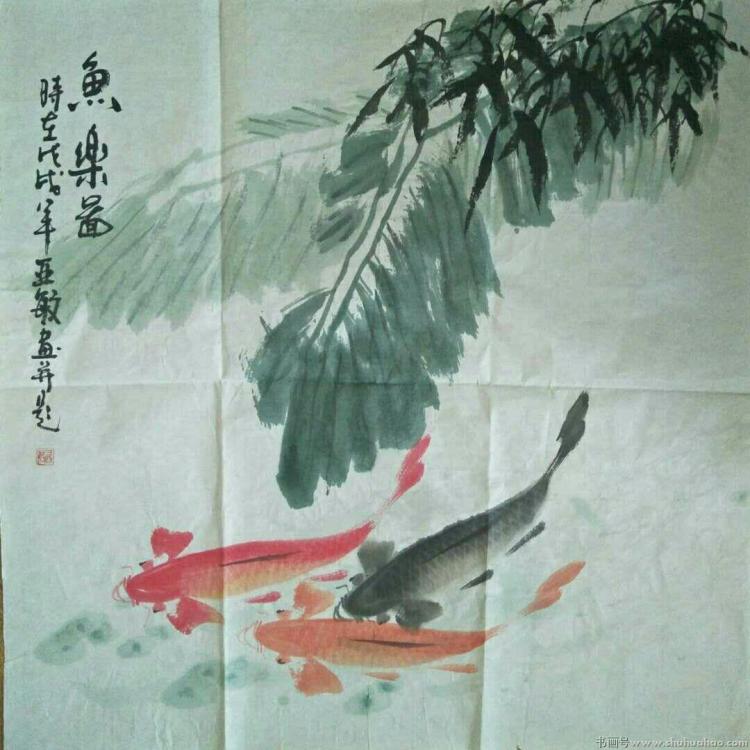 魚樂啚
時在戊戌年亞敏畫并題
书画号www.shuhuahao.com